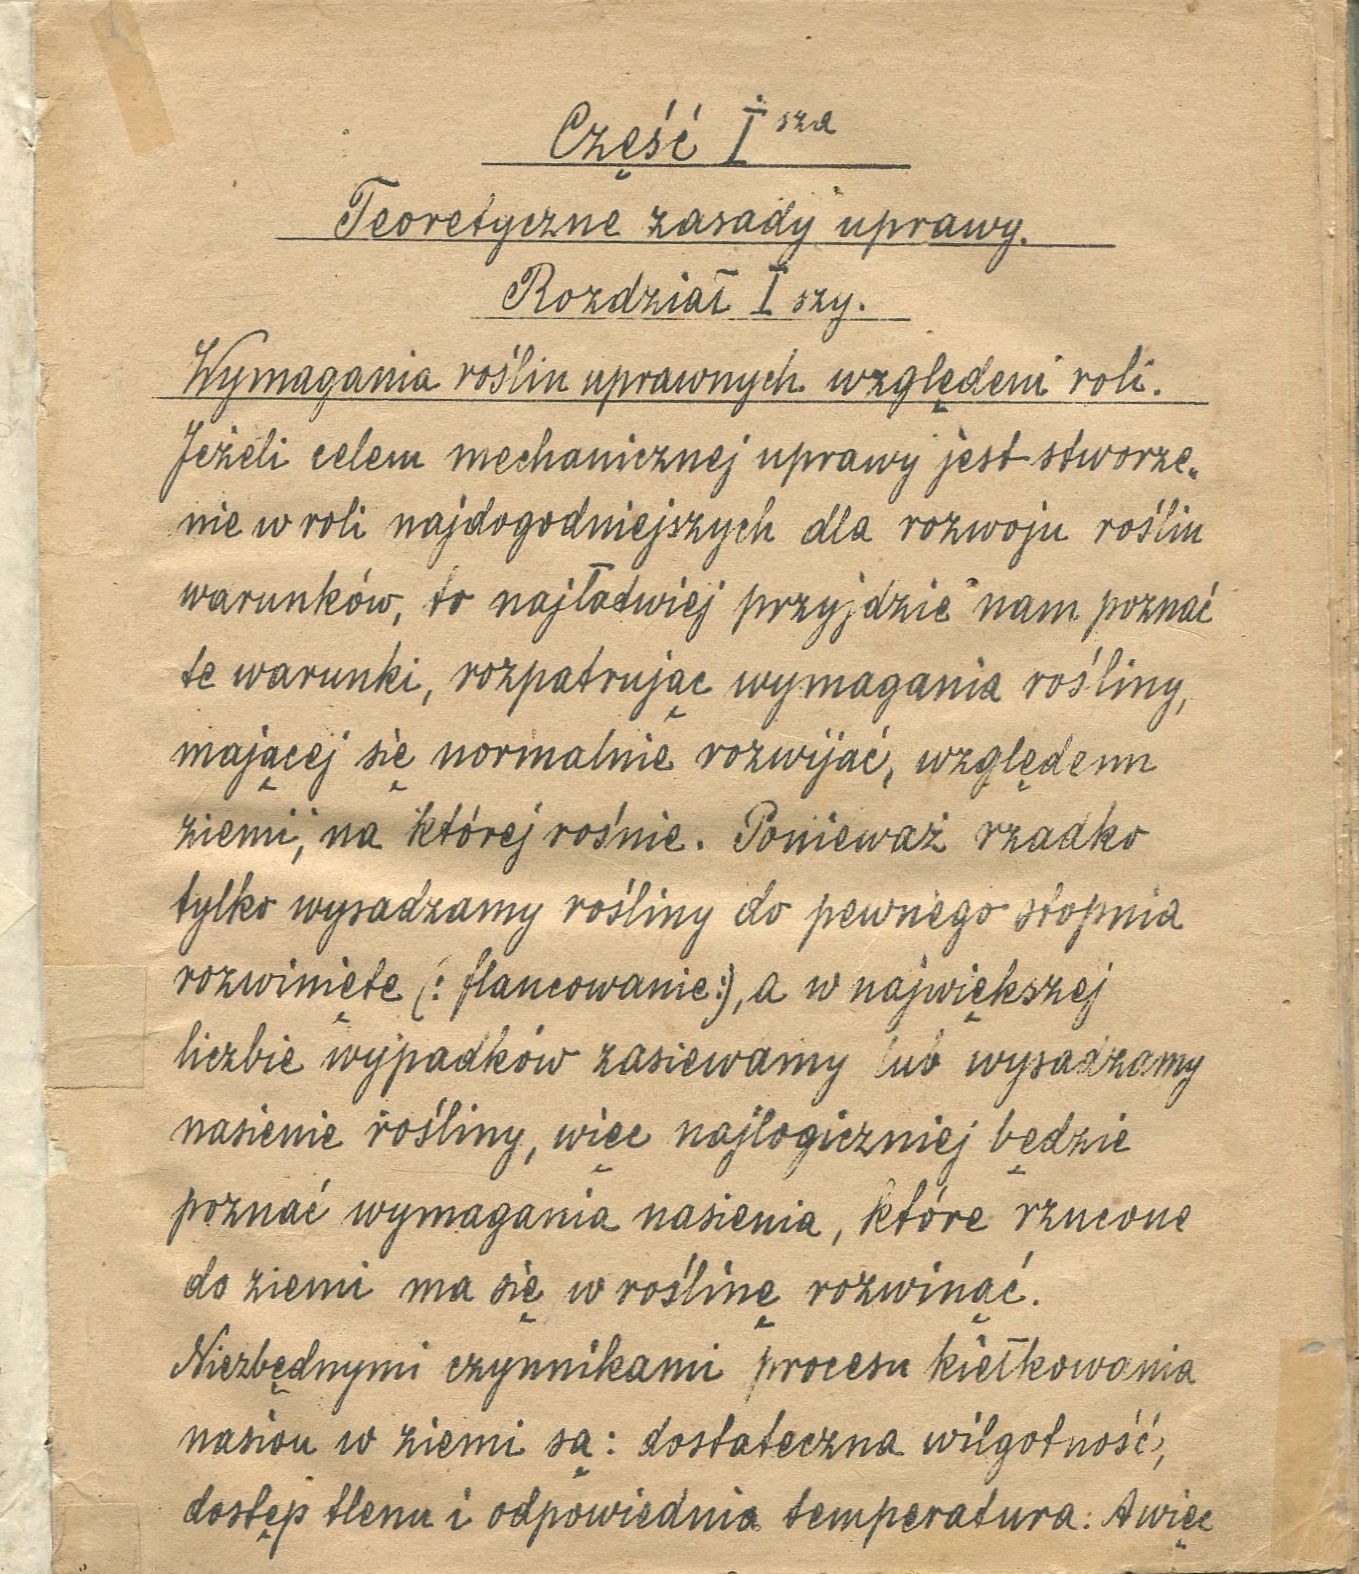 Część I sza
Teoretyczne zasady uprawy.
Rozdział I szy.
Wymagania roślin uprawnych względem roli.
Jeżeli celem mechanicznej uprawy jest stworze„
nie w roli najdogodniejszych dla rozwoju roślin
warunków, to najłatwiej przyjdzie nam poznać
te warunki, rozpatrując wymagania rośliny,
mającej się normalnie rozwijać, względem
ziemi, na której rośnie. Ponieważ rzadko
tylko wysadzamy rośliny do pewnego stopnia
rozwinięte (: flancowanie:), a w największej
liczbie wypadków zasiewamy lub wysadzamy
nasienie rośliny, więc najlogiczniej będzie
poznać wymagania nasienia, które rzucone
do ziemi ma się w roślinę rozwinąć.
Niezbędnymi czynnikami procesu kiełkowania
nasion w ziemi są: dostateczna wilgotność,
dostęp tlenu i odpowiednia temperatura. A więc